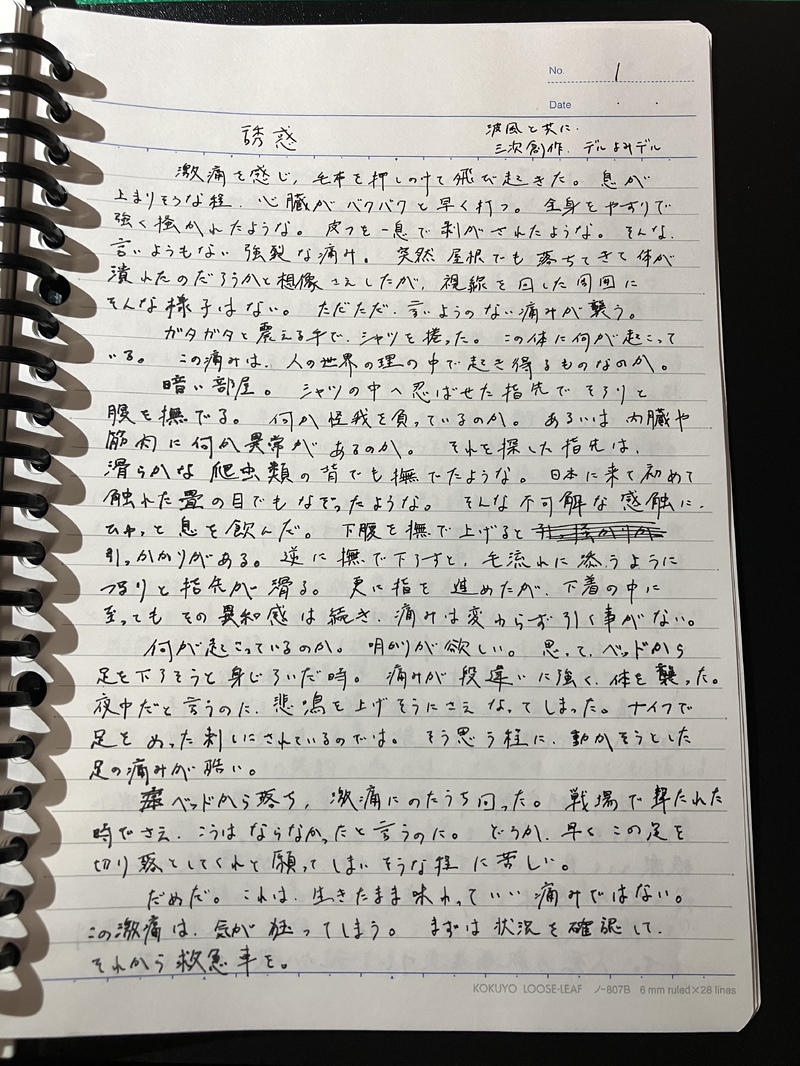 No. 1
Date
誘惑
波風と共に.
三次創作. デルよみデル
激痛を感じ, 毛布を押しのけて飛び起きた。息が
止まりそうな程. 心臓がバクバクと早く打つ。全身をやすりで
強く掻かれたような。皮フを一息で剥がされたような。そんな.
言いようもない強裂な痛み。突然屋根でも落ちてきて体が
潰れたのだろうかと想像さえしたが, 視線を回した周囲に
そんな様子はない。ただただ. 言いようのない痛みが襲う。
ガタガタと震える手で, シャツを捲った。この体に何が起こって
いる。この痛みは, 人の世界の理の中で起き得るものなのか。
暗い部屋。シャツの中へ忍ばせた指先でそろりと
腹を撫でる。何か怪我を負っているのか。あるいは内臓や
筋肉に何か異常があるのか。それを探した指先は,
滑らかな爬虫類の背でも撫でたような。日本に来て初めて
触れた畳の目でもなぞったような。そんな不可解な感触に.
ひゅっと息を飲んだ。下腹を撫で上げると
引っかかりがある。逆に撫で下ろすと, 毛流れに添うように
つるりと指先が滑る。更に指を進めたが. 下着の中に
至ってもその異和感は続き. 痛みは変わらず引く事がない。
何が起こっているのか。明かりが欲しい。思って, ベッドから
足を下ろそうと身じろいだ時。痛みが段違いに強く. 体を襲った。
夜中だと言うのに. 悲鳴を上げそうにさえなってしまった。ナイフで
足をめった刺しにされているのでは。そう思う程に. 動かそうとした
足の痛みが酷い。
ベッドから落ち, 激痛にのたうち回った。戦場で撃たれた
時でさえ. こうはならなかったと言うのに。どうか. 早くこの足を
切り落としてくれと願ってしまいそうな程に苦しい。
だめだ。これは. 生きたまま味わっていい痛みではない。
この激痛は. 気が狂ってしまう。まずは状況を確認して.
それから救急車を。
KOKUYO LOOSE-LEAF ノ-807B 6 mm ruled×28 lines